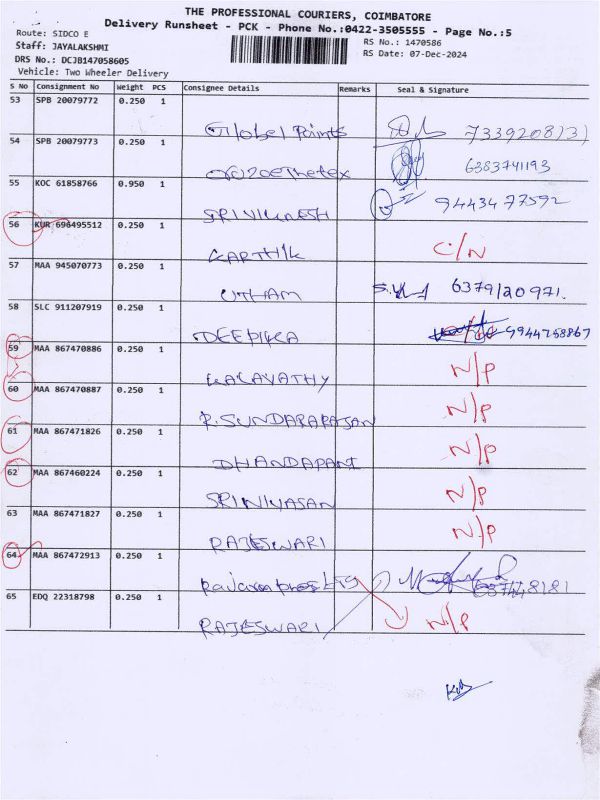 THE PROFESSIONAL COURIERS, COIMBATORE
Delivery Runsheet - PCK - Phone No.:0422-3505555 - Page No.:5
Route: SIDCO E
RS No.: 1470586
Staff: JAYALAKSHMI
RS Date: 07-Dec-2024
DRS No.: DCJB147058605
Vehicle: Two Wheeler Delivery
S No Consignment No Weight PCS Consignee Details Remarks Seal & Signature
53 SPB 20079772 0.250 1
Global Paints
54 SPB 20079773 0.250 1
6383741193
55 KOC 61858766 0.950 1
SRIVIGNESH 9443477592
56 KUR 696495512 0.250 1
KARTHIK C/N
57 MAA 945070773 0.250 1
UTHAM 6379120971.
58 SLC 911207919 0.250 1
DEEPIKA 9944758867
59 MAA 867470886 0.250 1
KALAVATHY N/P
60 MAA 867470887 0.250 1
R.SUNDARARAJAN N/P
61 MAA 867471826 0.250 1
DHANDAPANI N/P
62 MAA 867460224 0.250 1
SRINIVASAN N/P
63 MAA 867471827 0.250 1
RAJESWARI N/P
64 MAA 867472913 0.250 1
65 EDQ 22318798 0.250 1
RAJESWARI N/P